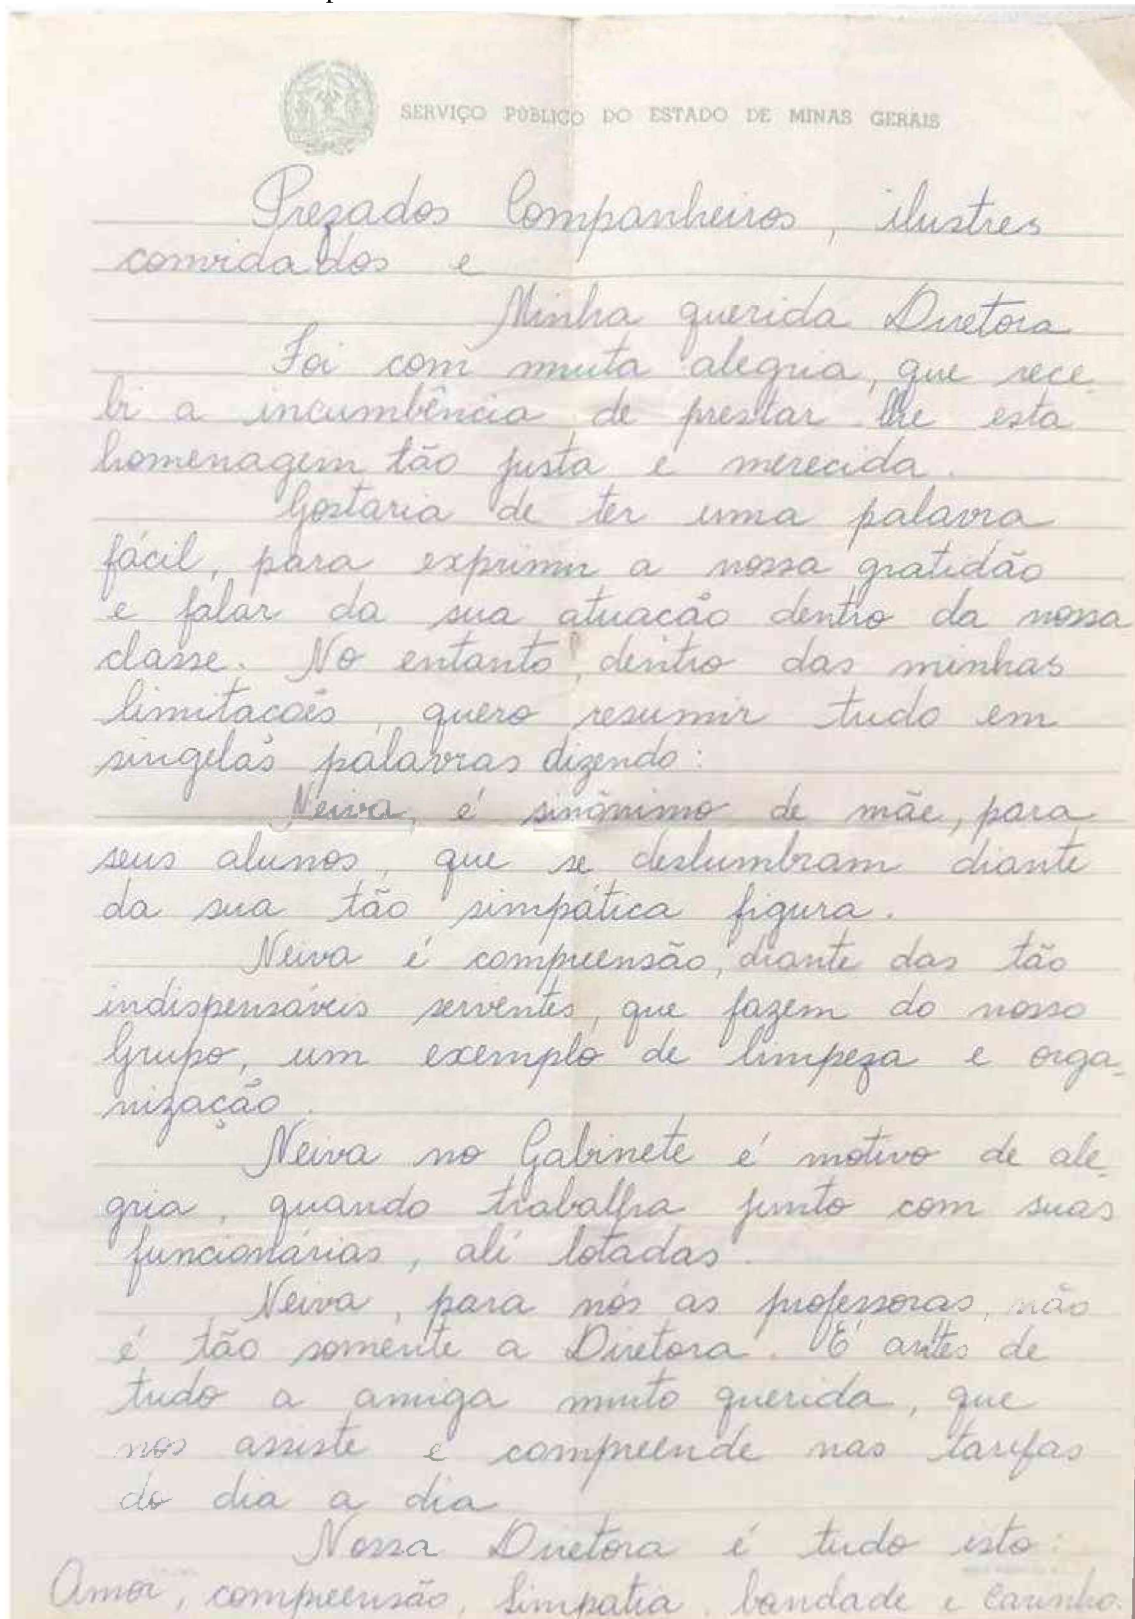 SERVIÇO PÚBLICO DO ESTADO DE MINAS GERAIS
Prezados Companheiros, ilustres
convidados e
Minha querida Diretora
Foi com muita alegria, que rece-
bi a incumbência de prestar-lhe esta
homenagem tão justa e merecida.
Gostaria de ter uma palavra
fácil, para exprimir a nossa gratidão
e falar da sua atuacão dentro da nossa
classe. No entanto, dentro das minhas
limitacões, quero resumir tudo em
singelas palavras dizendo:
Neiva, é sinônimo de mãe, para
seus alunos, que se deslumbram diante
da sua tão simpática figura.
Neiva é compreensão, diante das tão
indispensáveis serventes, que fazem do nosso
Grupo, um exemplo de limpeza e orga-
nização.
Neiva no Gabinete é motivo de ale-
gria, quando trabalha junto com suas
funcionárias, ali lotadas.
Neiva, para nós as professoras, não
é tão somente a Diretora. É antes de
tudo a amiga muito querida, que
nos assiste e compreende nas tarefas
do dia a dia
Nossa Diretora é tudo isto:
Amor, compreensão, Simpatia, bandade e Carinho.